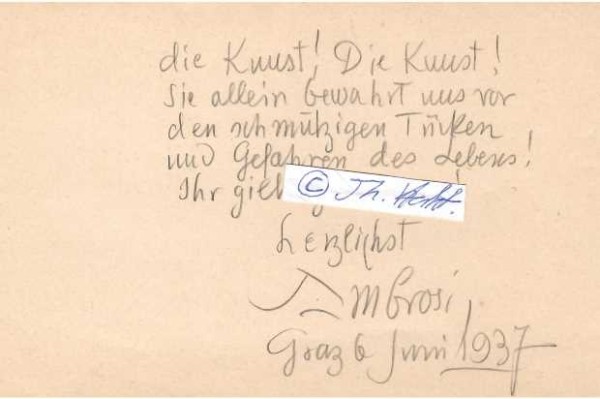 die Kunst! Die Kunst!
Sie allein bewahrt uns vor
den schmutzigen Tücken
und Gefahren des Lebens!
Ihr
© Th.
herzlichst
Ambrosi
Graz 6 Juni 1937